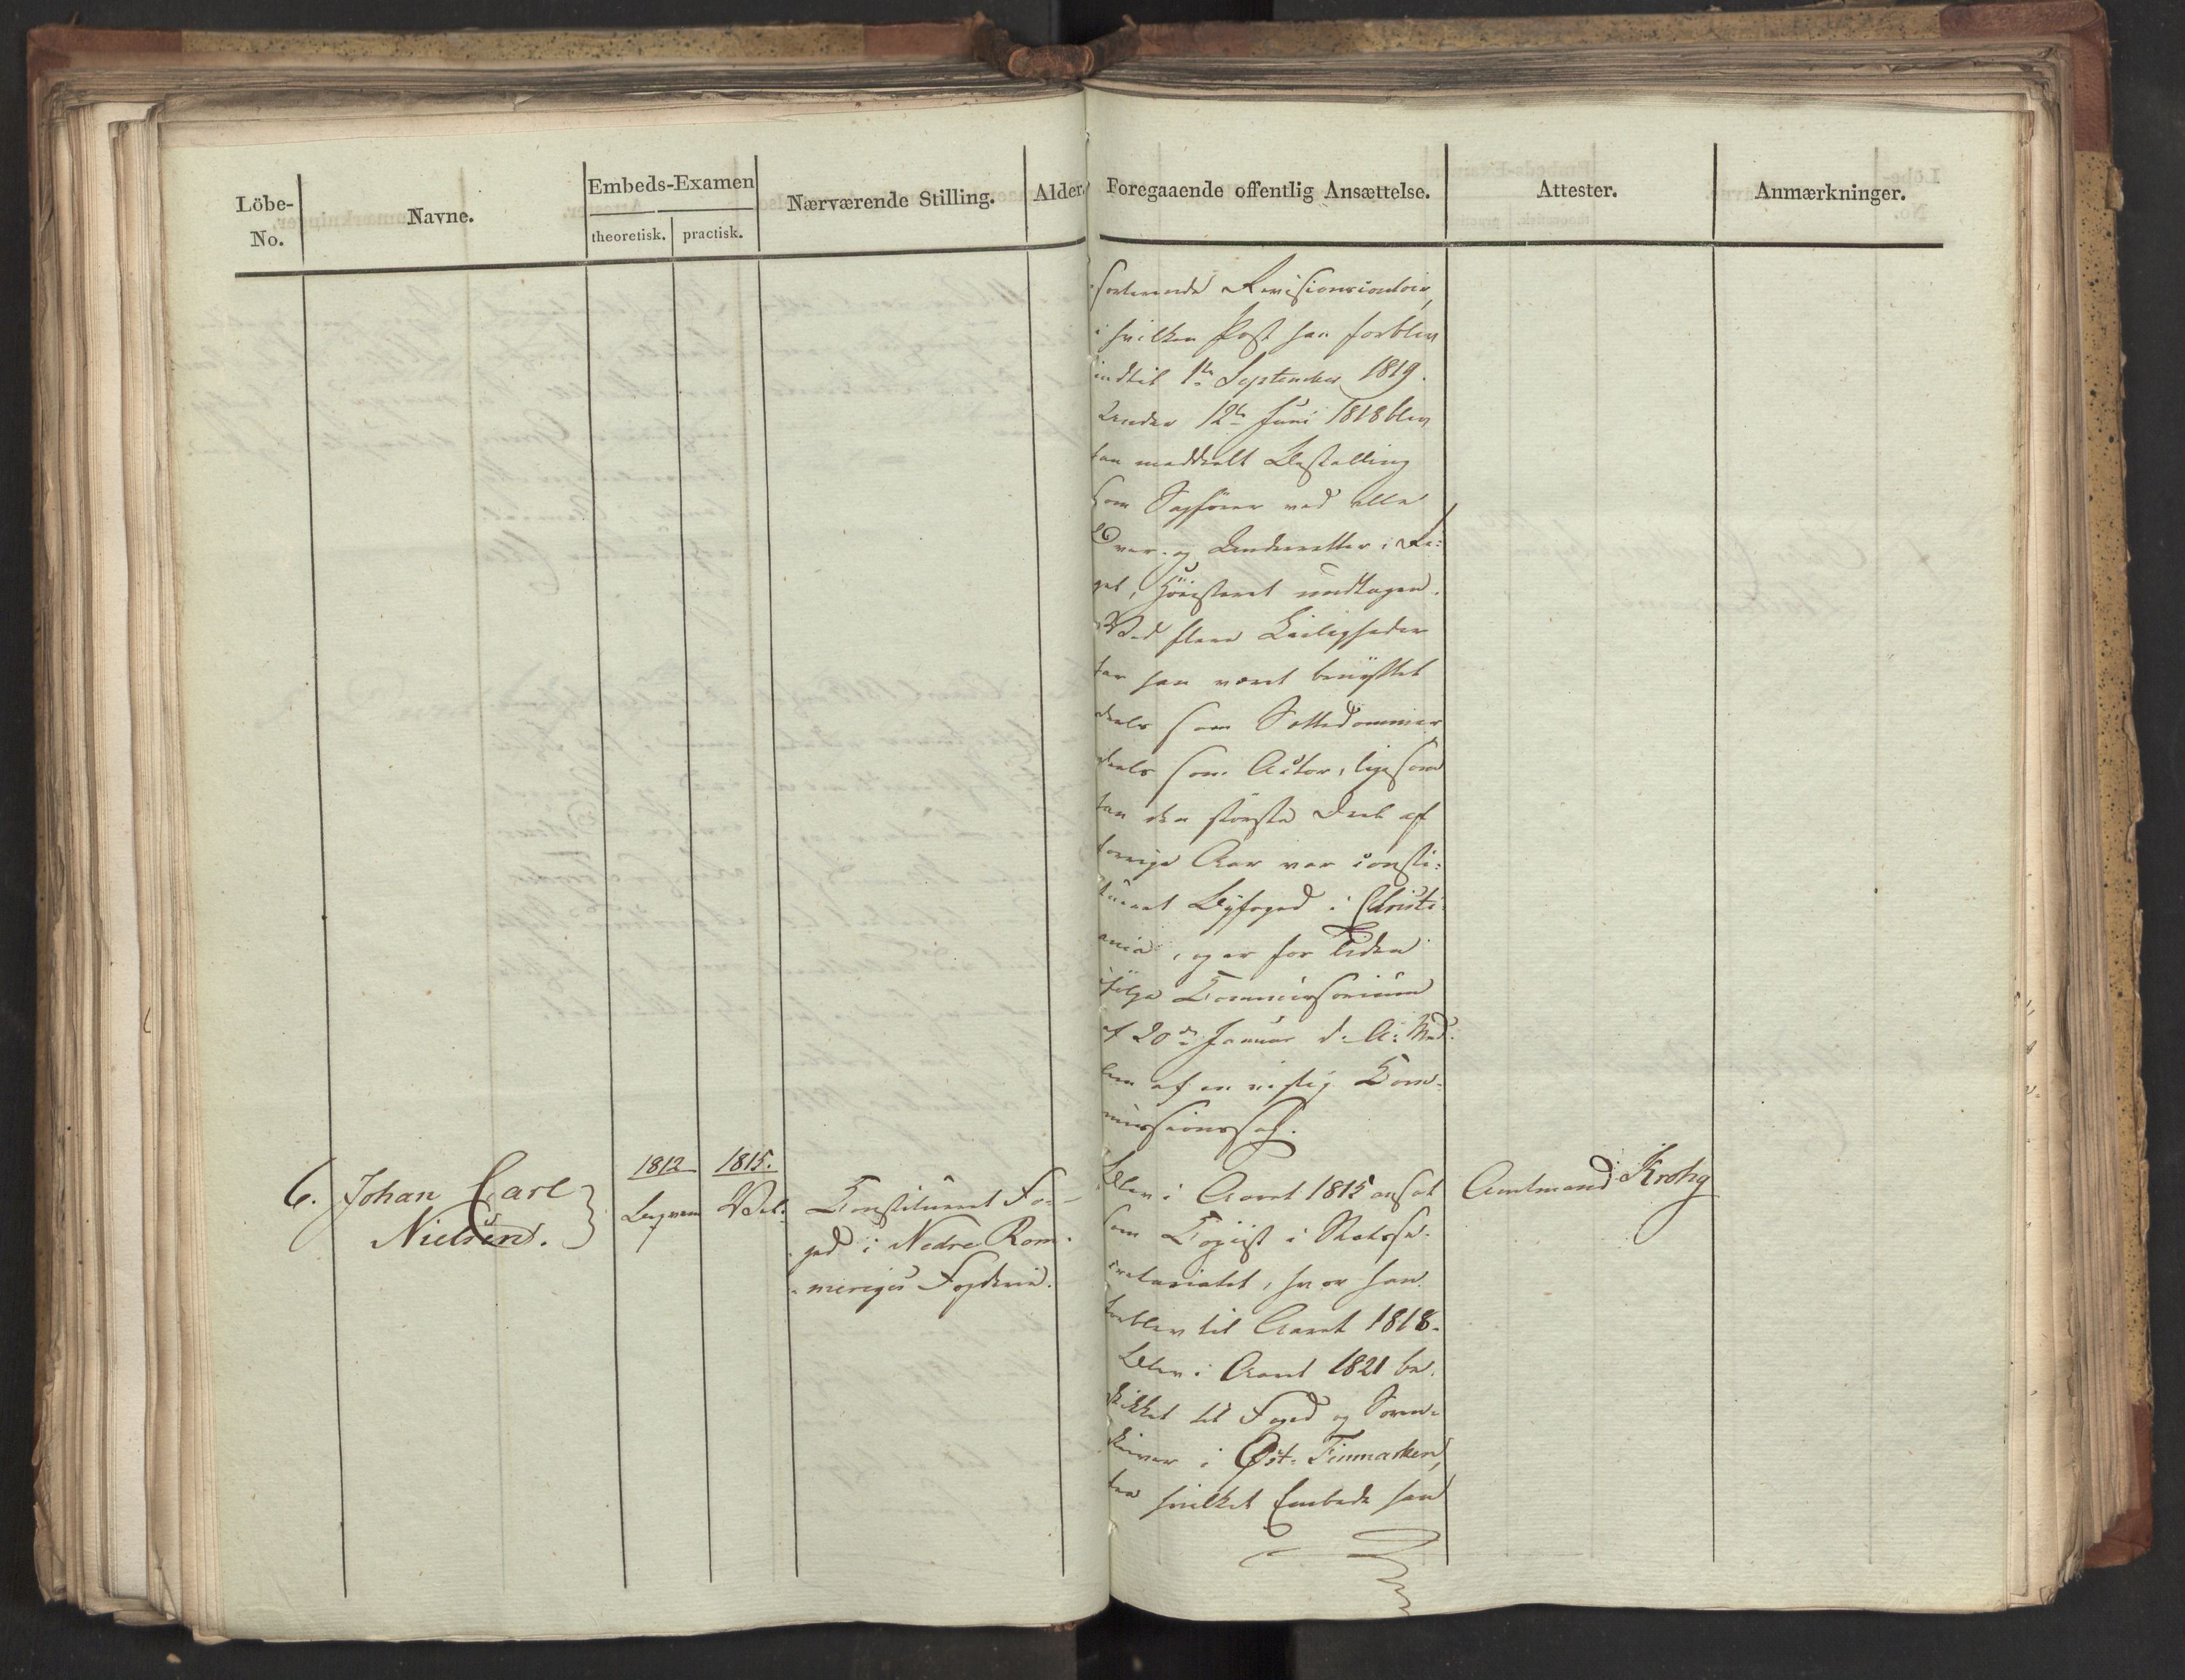 Löbe-
No.
Navne.
Embeds-Examen
theoretisk.
practisk.
Nærværende Stilling.
Alder.
Foregaaende offentlig Ansættelse.
Attester.
Anmærkninger.
sorterende Revisionscontoir,
i hvilken Post han forblev
indtil 1ste September 1819.
Under 12te Juni 1818 blev
han meddeelt Bestalling
som Sagfører ved alle
Over- og Underretter i Ri-
get, Höiesteret undtagen.
Ved flere Leiligheder
har han været benyttet
deels som Sættedommer
deels som Actor, ligesom
han den störste Deel af
forrige Aar var consti-
tueret Byfoged i Christi-
ania, og er for Tiden
ifölge Commissorium
af 20de Januar d. A. Med-
lem af en vigtig Com-
missionssag.
6.
Johan Carl
Nielsen.
1812
1815.
Vel.
Constitueret Fo-
ged i Nedre Rom-
meriges Fogderie.
Blev i Aaret 1815 ansat
som Copiist i Statsse-
cretariatet, hvor han
forblev til Aaret 1818.
Blev i Aaret 1821 be-
skikket til Foged og Soren-
skriver i Øst-Finmarken,
fra hvilket Embede han
Amtmand Krohg